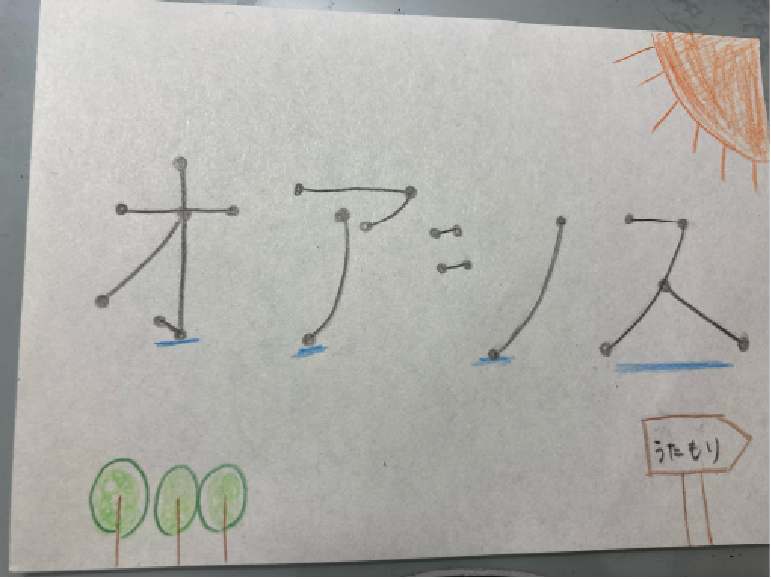 オアシス
うたもり